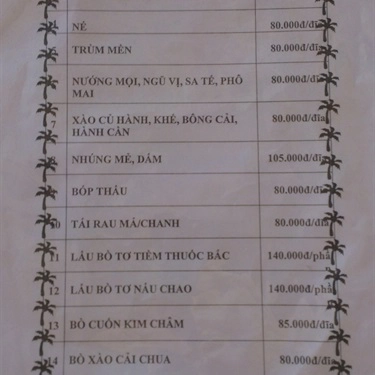 NÉ 80.000đ/đĩa
TRÙM MỀN 80.000đ/đĩa
NƯỚNG MỌI, NGŨ VỊ, SA TẾ, PHÔ 80.000đ/đĩa
MAI
7 XÀO CỦ HÀNH, KHẾ, BÔNG CẢI, 80.000đ/đĩa
HÀNH CẦN
NHÚNG MẺ, DẤM 105.000đ/đĩa
BÓP THẤU 80.000đ/đĩa
10 TÁI RAU MÁ/CHANH 80.000đ/đĩa
11 LẨU BÒ TƠ TIỀM THUỐC BẮC 140.000đ/phầ
12 LẨU BÒ TƠ NẤU CHAO 140.000đ/phầ
13 BÒ CUỐN KIM CHÂM 85.000đ/đĩa
14 BÒ XÀO CẢI CHUA 80.000đ/đĩa